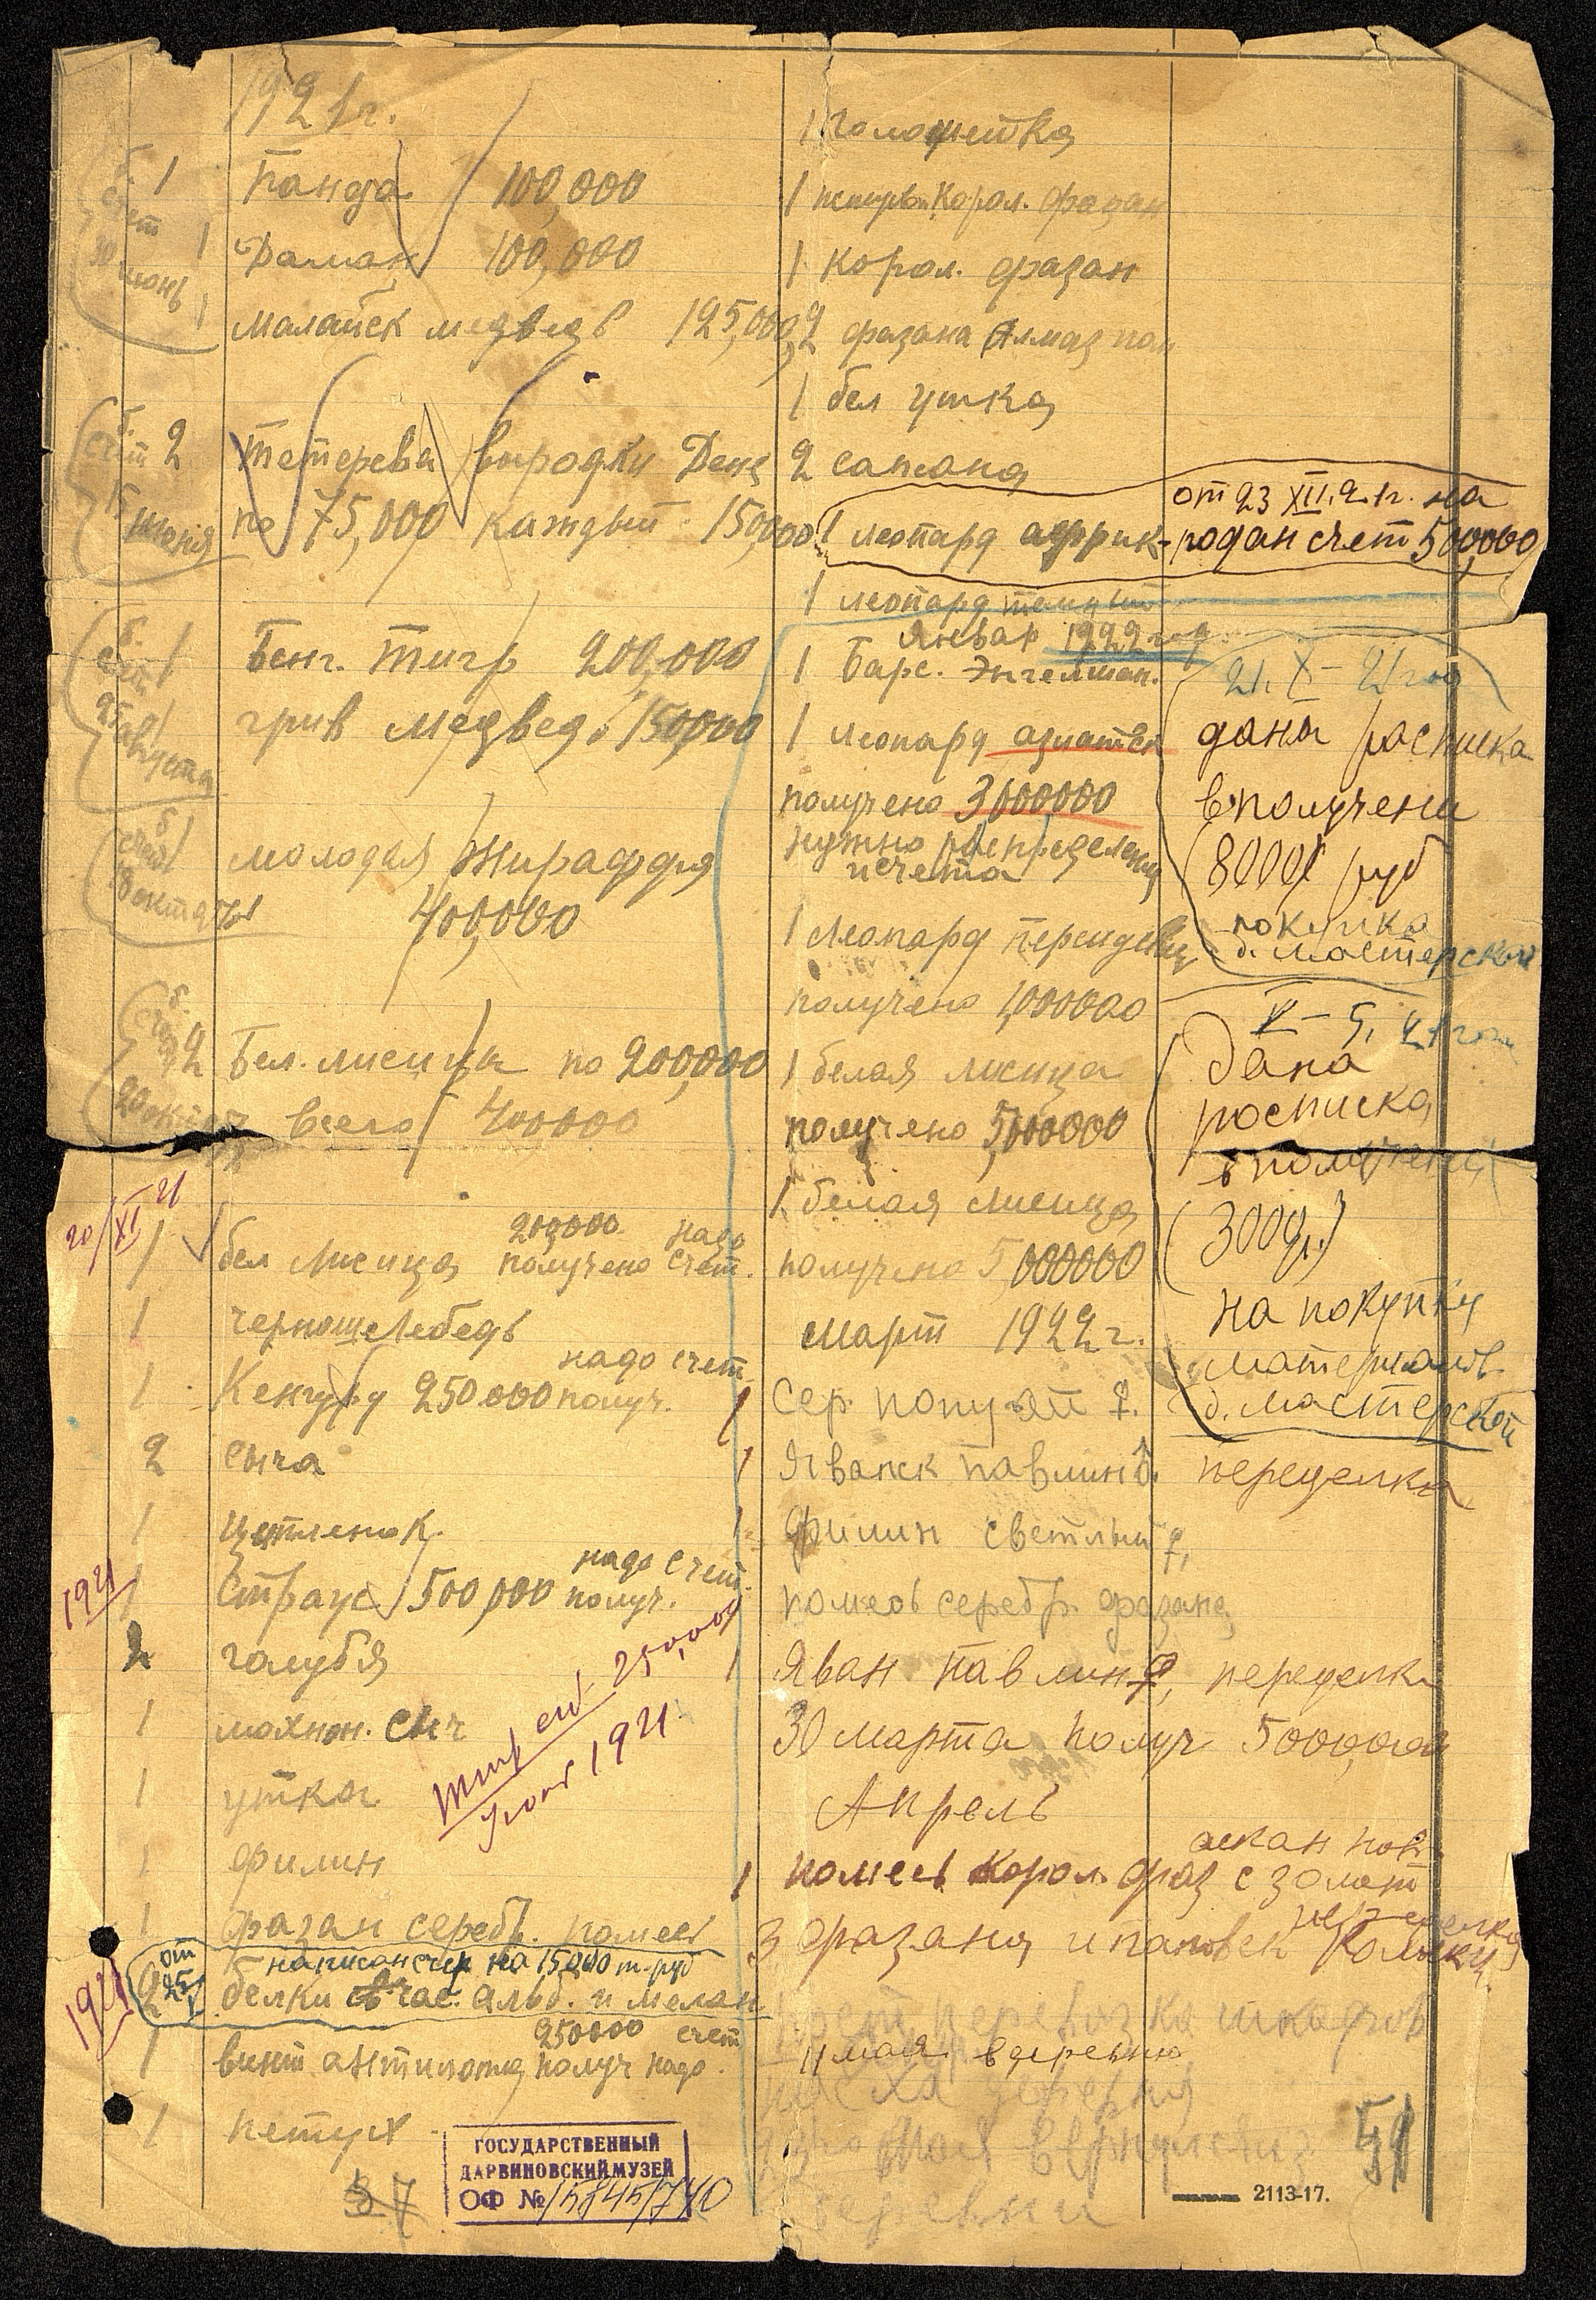 1921 г.
б. счет 30 июнь
1 Панда 100,000
1 Даман 100,000
1 малайск медведь 125,000
б. счет 15 июня
2 Тетерева выродки
по 75,000 каждый 150,000
б. счет 25 августа
1 Бенг. тигр 200,000
1 грив медведь 150,000
б. счет 8 октяб
молодая жираффа
400,000
б. счет 20 окт
2 Бел. лисицы по 200,000
всего 400000
20/XI 21
200,000 надо
1 бел лисица получено счет.
1 черношелебедь
надо счет
1 Кенгуру 250.000 получ.
2 сыча
1 цыпленок.
1921
надо счет.
1 Страус 500,000 получ.
2 голубя
1 мохнон. сыч
1 утка
1 филин
тигр 250,000
1921
1 фазан серебр. помесь
от 25
написан счет на 15000 т. руб
1921
2 белки альб. и мелан.
250000 счет
1 винт антилопа получ надо.
1 петух
37
ГОСУДАРСТВЕННЫЙ
ДАРВИНОВСКИЙ МУЗЕЙ
ОФ № 15845/740
1 голошейка
1 корол. фазан
1 корол. фазан
2 фазана Алмаз
1 бел утка
2 сапсана
1 леопард африк-
от 23 XII.21г. на
подан счет 500,000
1 леопард темный
Январ 1922 год
1 Барс. Энгельман.
1 Леопард азиатск
получено 3000000
нужно распределение
счета
1 Леопард переделка
получено 1,000000
1 белая лисица
получено 5,000000
1 белая лисица
получено 5,000000
21. X – 21 год
дана расписка
в получени
8000 руб
покупка
д. мастерской
V – 5, 21 год
Дана
росписка
в получени
(300 р.)
на покупку
материалов
д. мастерской
Март 1922 г.
1 Сер. попугай ♀.
1 Яванск павлин ♂. переделка
1 филин светлый ♀,
помесь серебр. фазана
1 Яван павлин ♀, переделка
30 марта получ 5000,000
Апрель
аскан нов.
1 помесь корол. фаз с золот
3 фазана
перевозка шкафов
11 мая в деревню
деревни
51
2113-17.